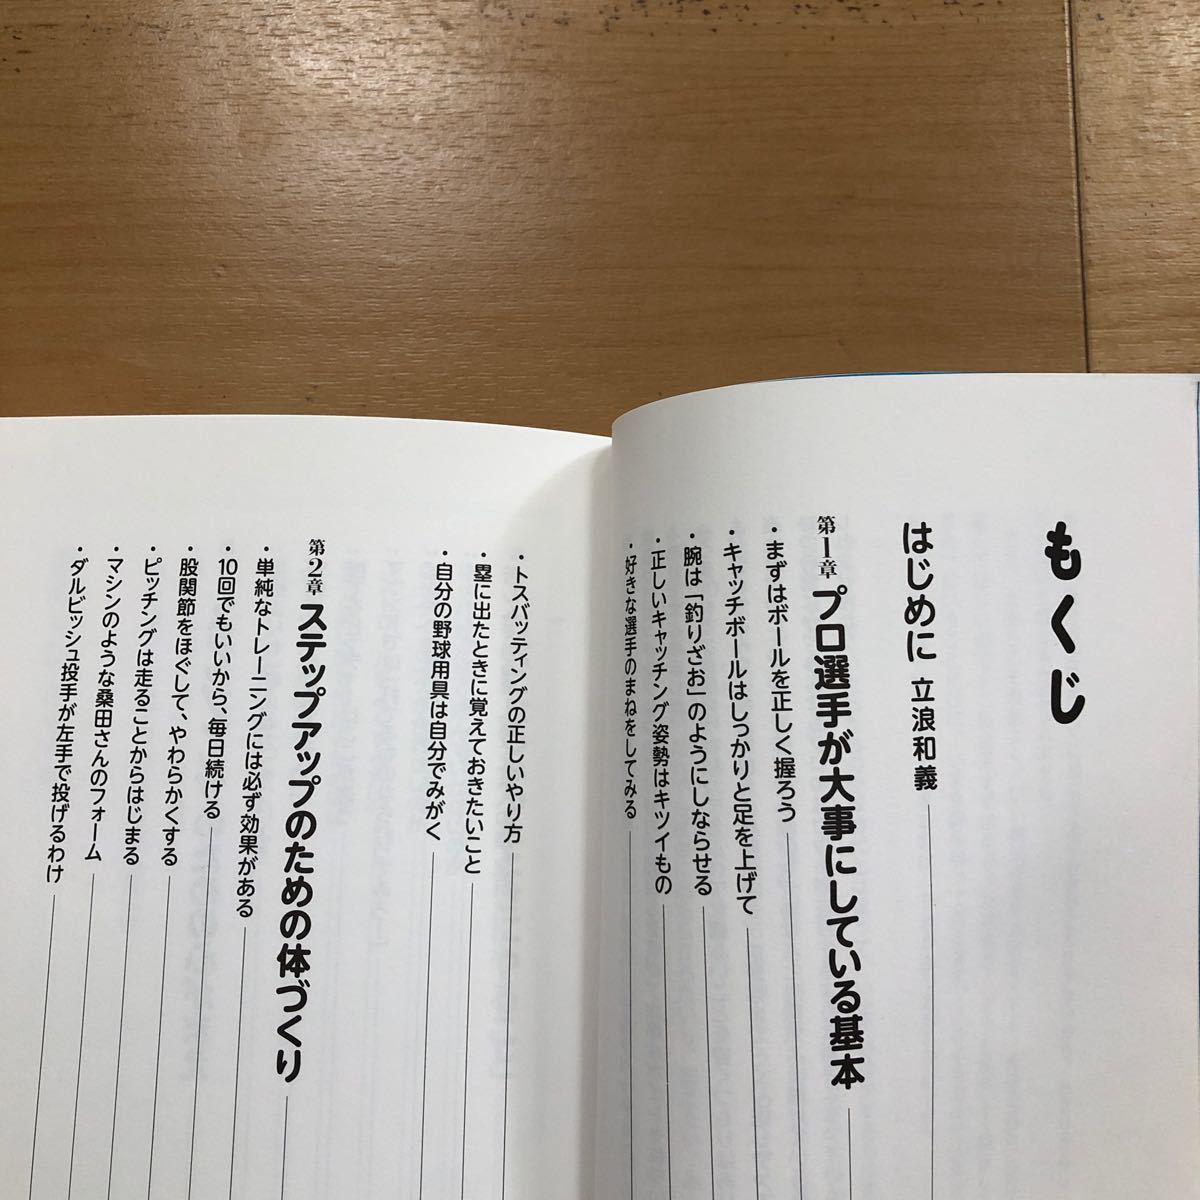 もくじ
はじめに 立浪和義
第1章 プロ選手が大事にしている基本
・まずはボールを正しく握ろう
・キャッチボールはしっかりと足を上げて
・腕は「釣りざお」のようにしならせる
・正しいキャッチング姿勢はキツイもの
・好きな選手のまねをしてみる
・トスバッティングの正しいやり方
・塁に出たときに覚えておきたいこと
・自分の野球用具は自分でみがく
第2章 ステップアップのための体づくり
・単純なトレーニングには必ず効果がある
・10回でもいいから、毎日続ける
・股関節をほぐして、やわらかくする
・ピッチングは走ることからはじまる
・マシンのような桑田さんのフォーム
・ダルビッシュ投手が左手で投げるわけ